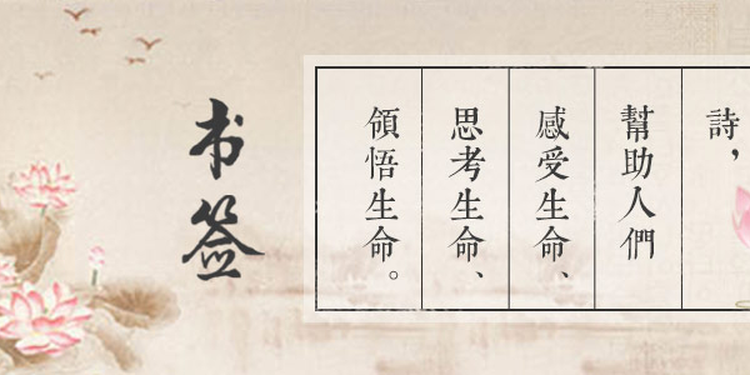 詩，
幫助人們
感受生命、
思考生命、
領悟生命。
书签